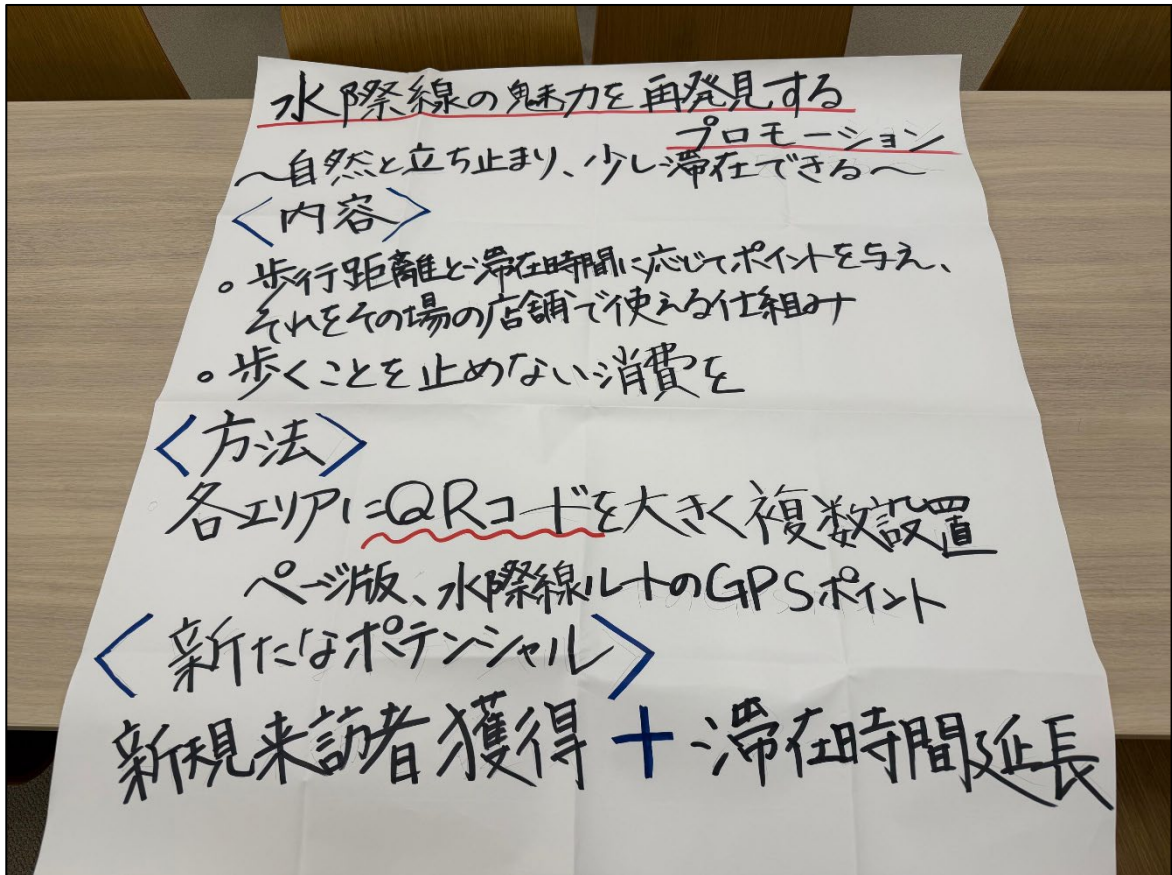 水際線の魅力を再発見する
プロモーション
～自然と立ち止まり、少し滞在できる～
〈内容〉
。歩行距離と滞在時間に応じてポイントを与え、
それをその場の店舗で使える仕組み
。歩くことを止めない消費を
〈方法〉
各エリアにQRコードを大きく複数設置
ページ版、水際線ルートのGPSポイント
〈新たなポテンシャル〉
新規来訪者獲得＋滞在時間延長